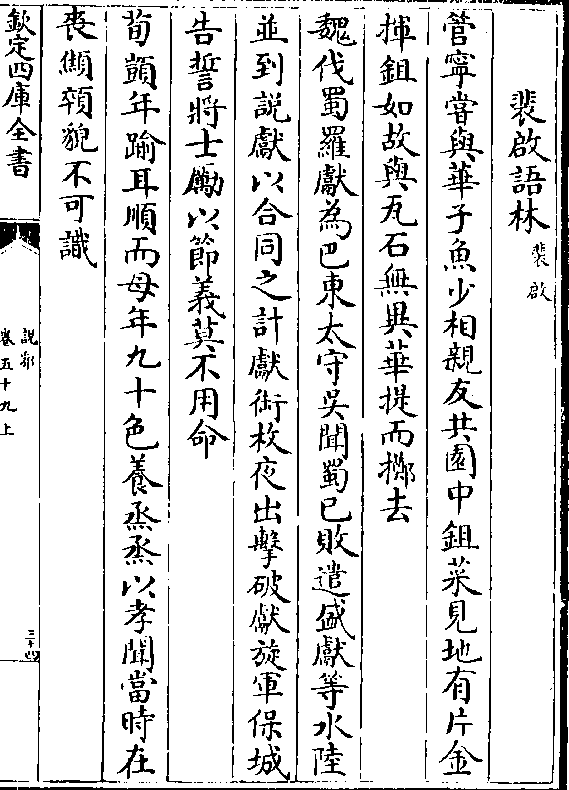 裴啟語林 裴啟
管寧嘗與華子魚少相親友共園中鉏菜見地有片金
揮鉏如故與瓦石無異華提而擲去
魏伐蜀羅獻為巴東太守吳聞蜀已敗遣盛獻等水陸
並到說獻以合同之計獻銜枚夜出擊破獻旋軍保城
告誓將士勵以節義莫不用命
荀顗年踰耳順而母年九十色養烝烝以孝聞當時在
喪顦顇貌不可識
欽定四庫全書
說郛
卷五十九上
三十四